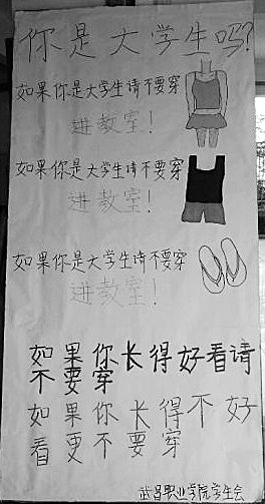 你是大学生吗?
如果你是大学生请不要穿
进教室!
如果你是大学生请不要穿
进教室!
如果你是大学生请不要穿
进教室!
如果你长得好看请
不要穿
如果你长得不好
看更不要穿
武昌职业学院学生会